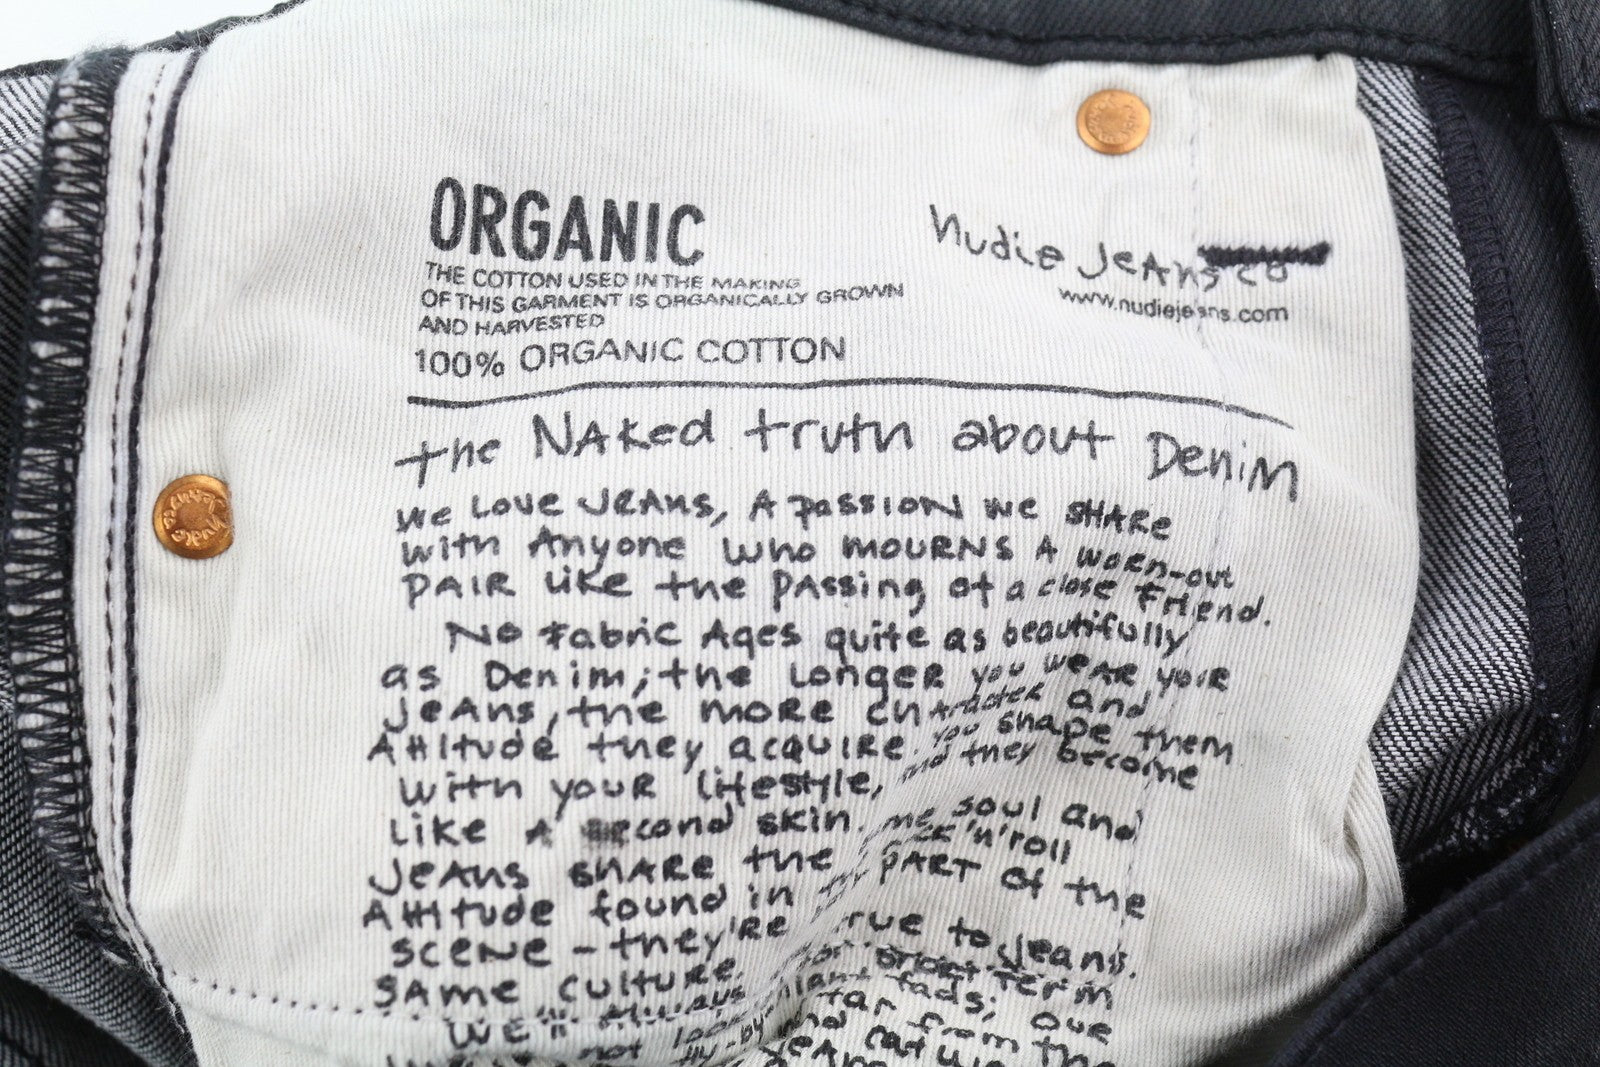 ORGANIC
THE COTTON USED IN THE MAKING
OF THIS GARMENT IS ORGANICALLY GROWN
AND HARVESTED
100% ORGANIC COTTON
Nudie Jeans co
www.nudiejeans.com
the NAKed truth about Denim
We Love JeANs, A passion we SHARe
with Anyone who MOURNS A worn-out
PAIR Like the passing of a close friend.
No fabric Ages quite as beautifully
as Denim; the Longer you weAR your
JeAns, the more character and
Attitude they acquire. you shape them
with your lifestyle, and they become
Like A second skin.
soul and
JeAns SHARe the 'n' roll
Attitude found in PART of the
scene - they're true to jeans.
SAMe culture.
We'll Always term
not fads; our
from the